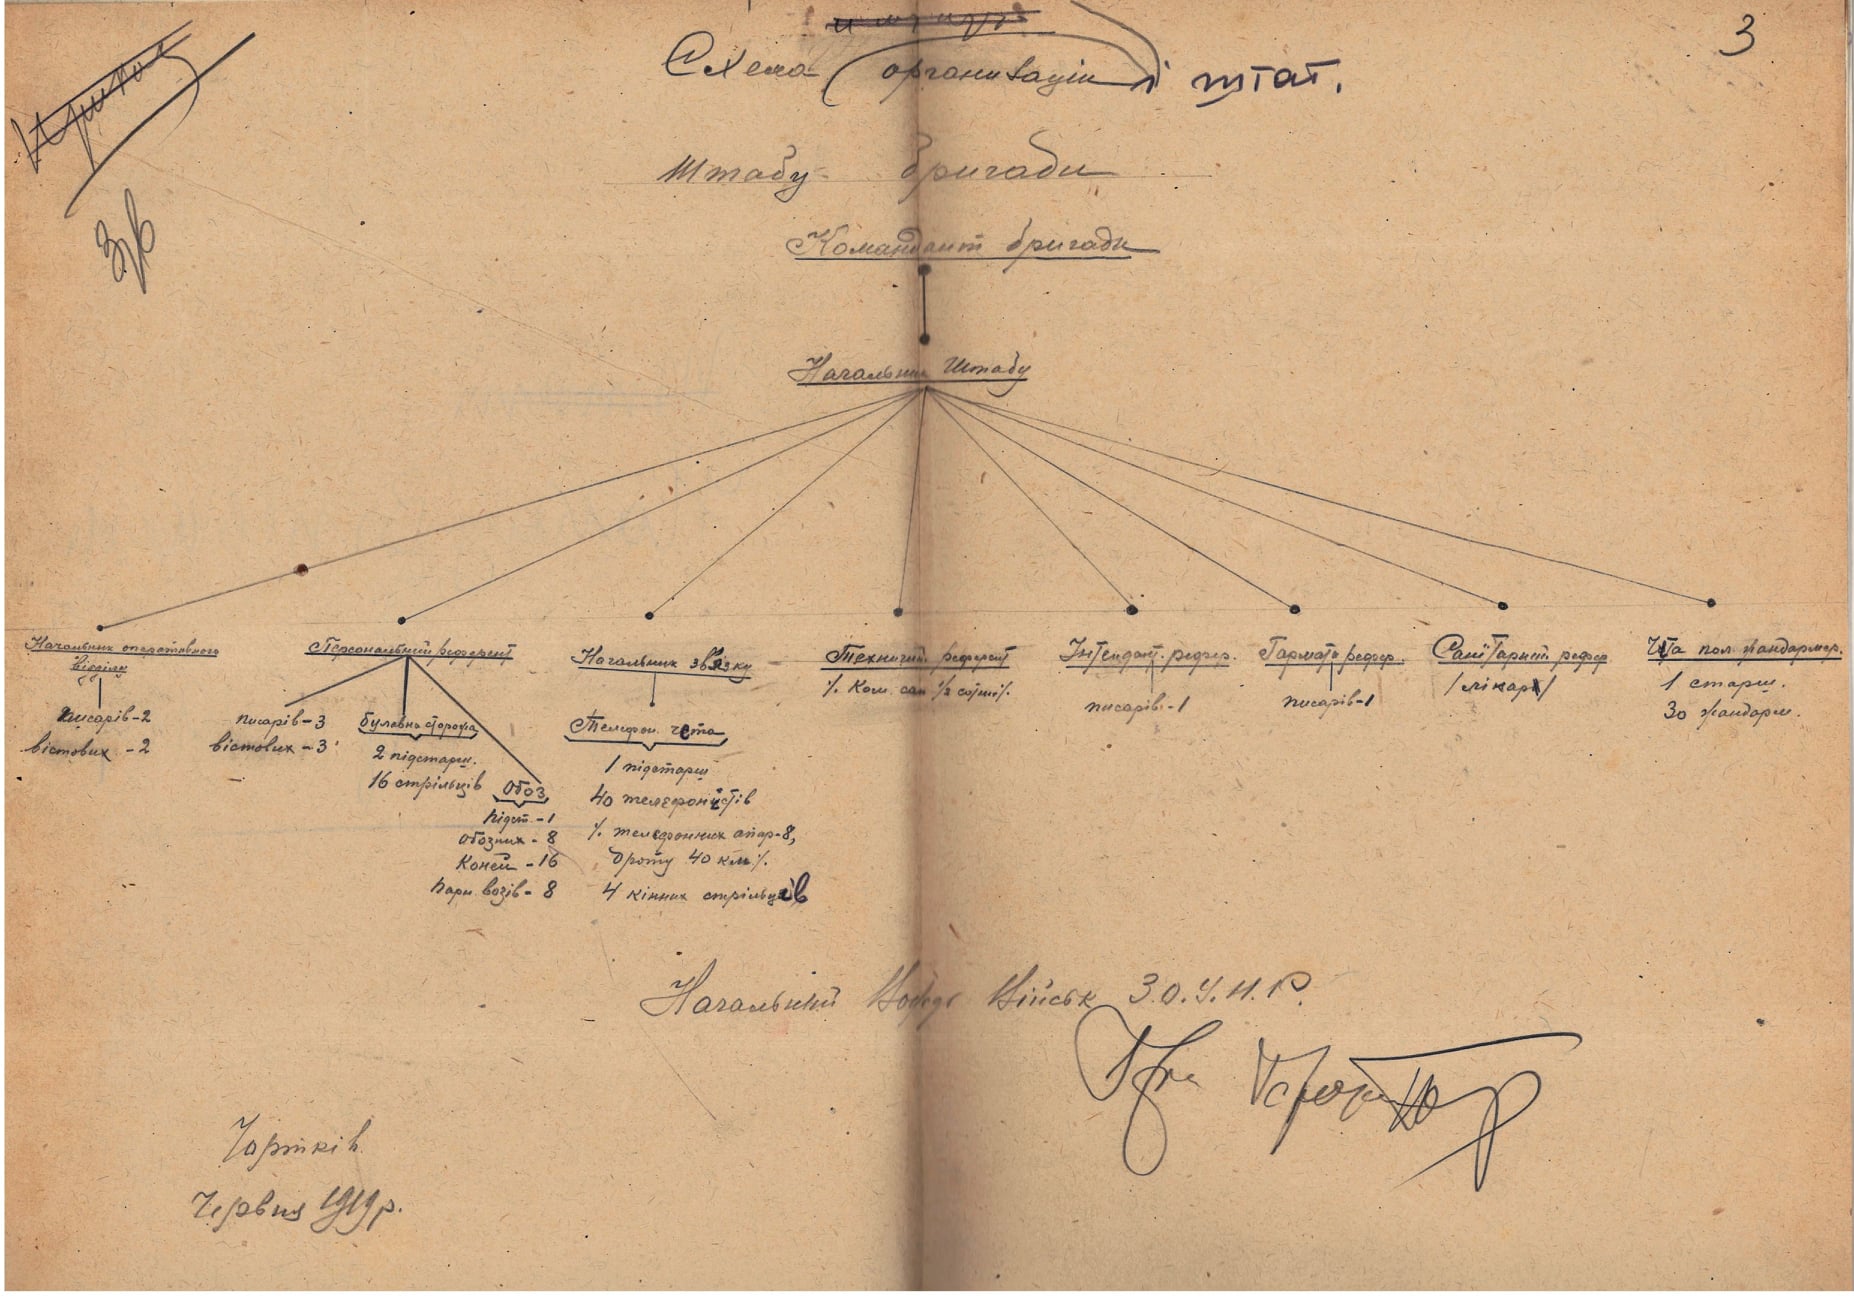 3
Схема організації і штат.
Штабу бригади
Командант бригади
Начальник Штабу
Начальник оперативного
відділу
писарів-2
вістових -2
Персональний референт
писарів-3
вістових -3
булавна сторожа
2 підстарш.
16 стрільців
Обоз
підст.-1
обозних - 8
Коней -16
парн. возів- 8
Начальник звязку
Телефон. чета
1 підстарш
40 телефоністів
% телефонних апар-8,
дроту 40 км%.
4 кінних стрільців
Технічний референт
% Ком. сап ½ сотні%.
Інтендант. рефер.
писарів.-1
Гармата рефер.
писарів-1
Санітарний рефер
/лікар/
Чета пол. жандармер.
1 старш.
30 жандарм.
Начальний Вождь Військ З.О.У.Н.Р.
Чортків.
Червня 1919р.